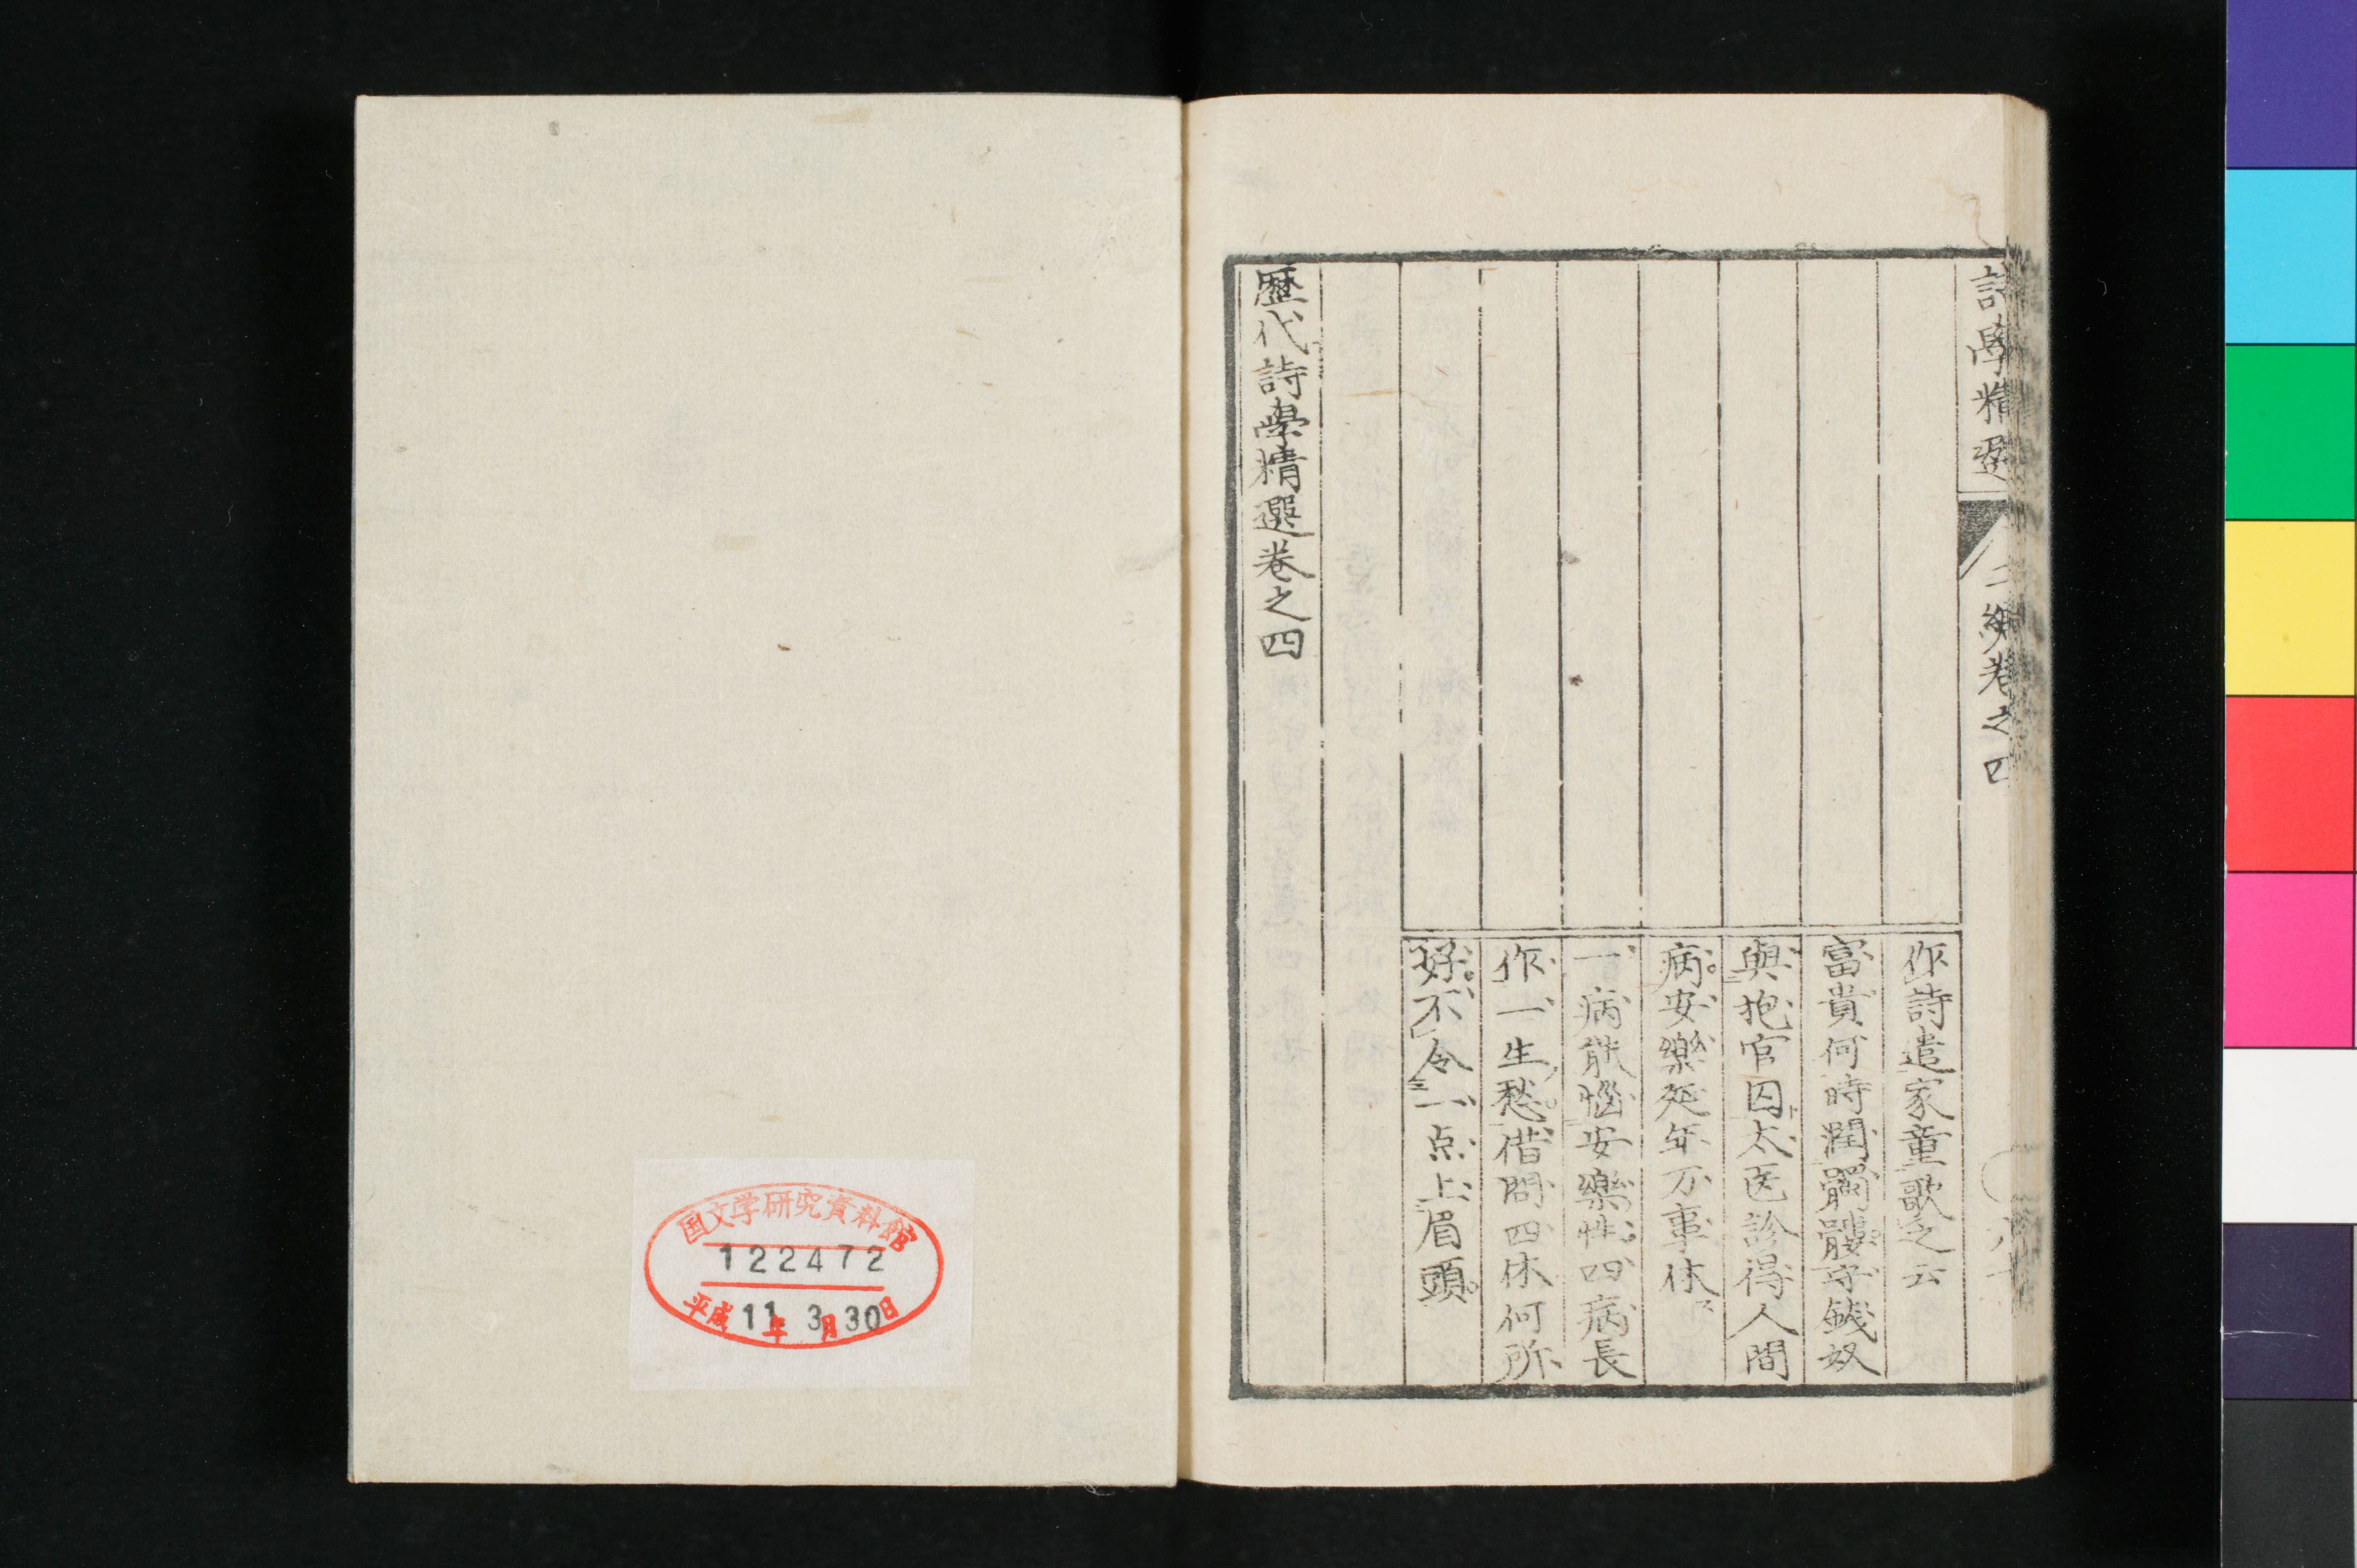 詩學精選
二編卷之四
作詩遣家童歌之云
富貴何時潤髑髏守錢奴
與抱官囚太医診得人間
病安樂延年万事休
一病能惱安樂性四病長
作一生愁借問四休何所
好不令一点上眉頭
歷代詩學精選卷之四
国文学研究資料館
122472
平成11年3月30日